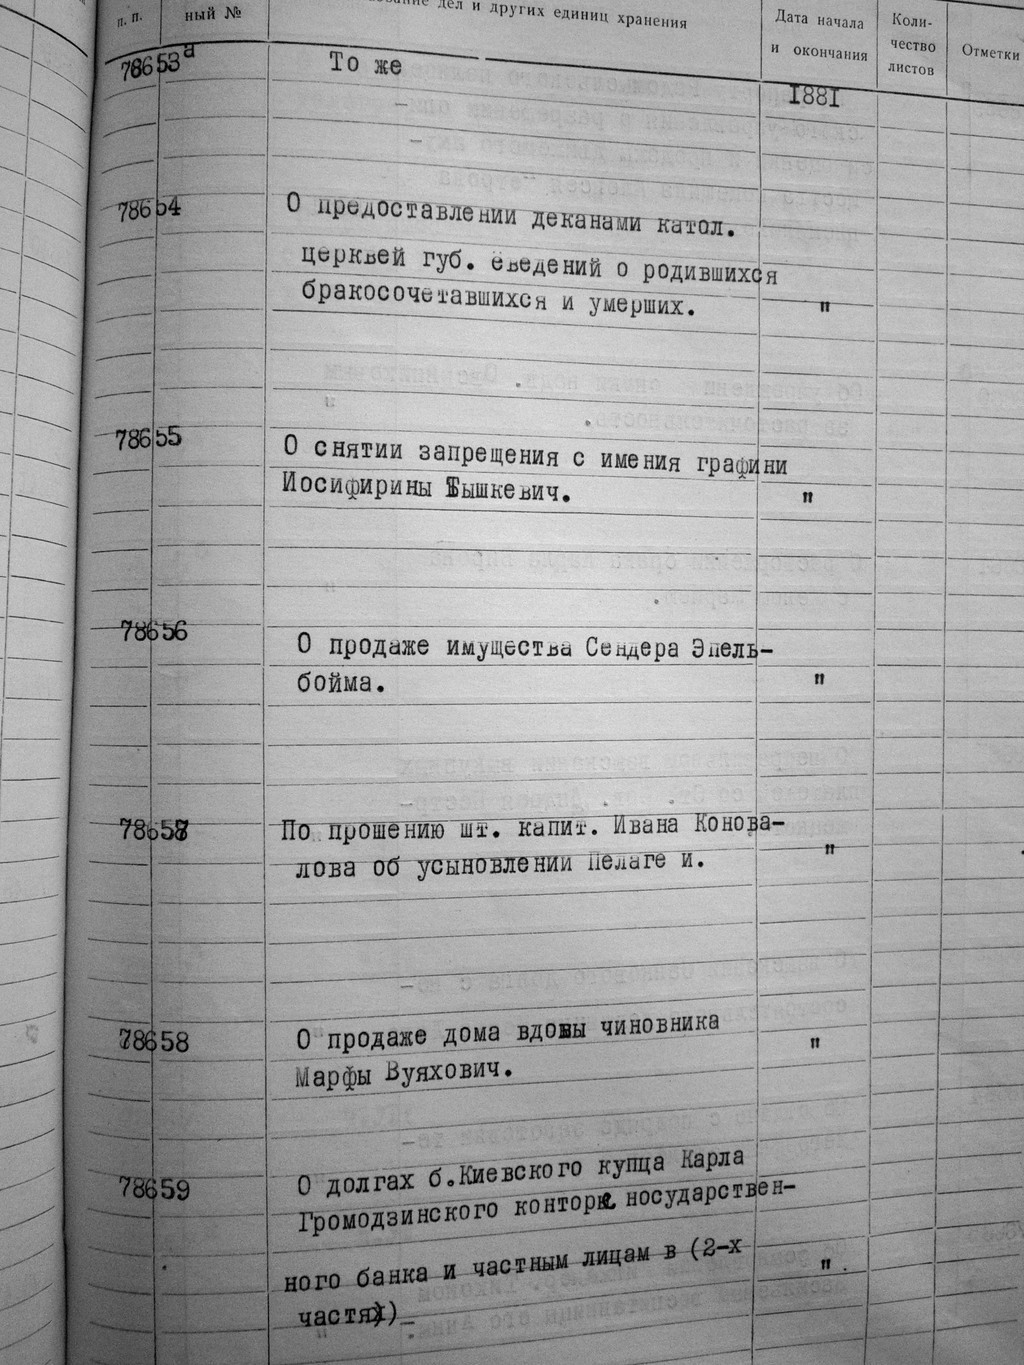 п. п.
ный №
дел и других единиц хранения
Дата начала
и окончания
Коли-
чество
листов
Отметки
78653а
То же
1881
78654
О предоставлении деканами катол.
церквей губ. сведений о родившихся
бракосочетавшихся и умерших.
"
78655
О снятии запрещения с имения графини
Иосифирины Тышкевич.
"
78656
О продаже имущества Сендера Эпель-
бойма.
"
78657
По прошению шт. капит. Ивана Конова-
лова об усыновлении Пелаге и.
"
78658
О продаже дома вдовы чиновника
Марфы Вуяхович.
"
78659
О долгах б.Киевского купца Карла
Громодзинского конторе носударствен-
ного банка и частным лицам в (2-х
частях)
"